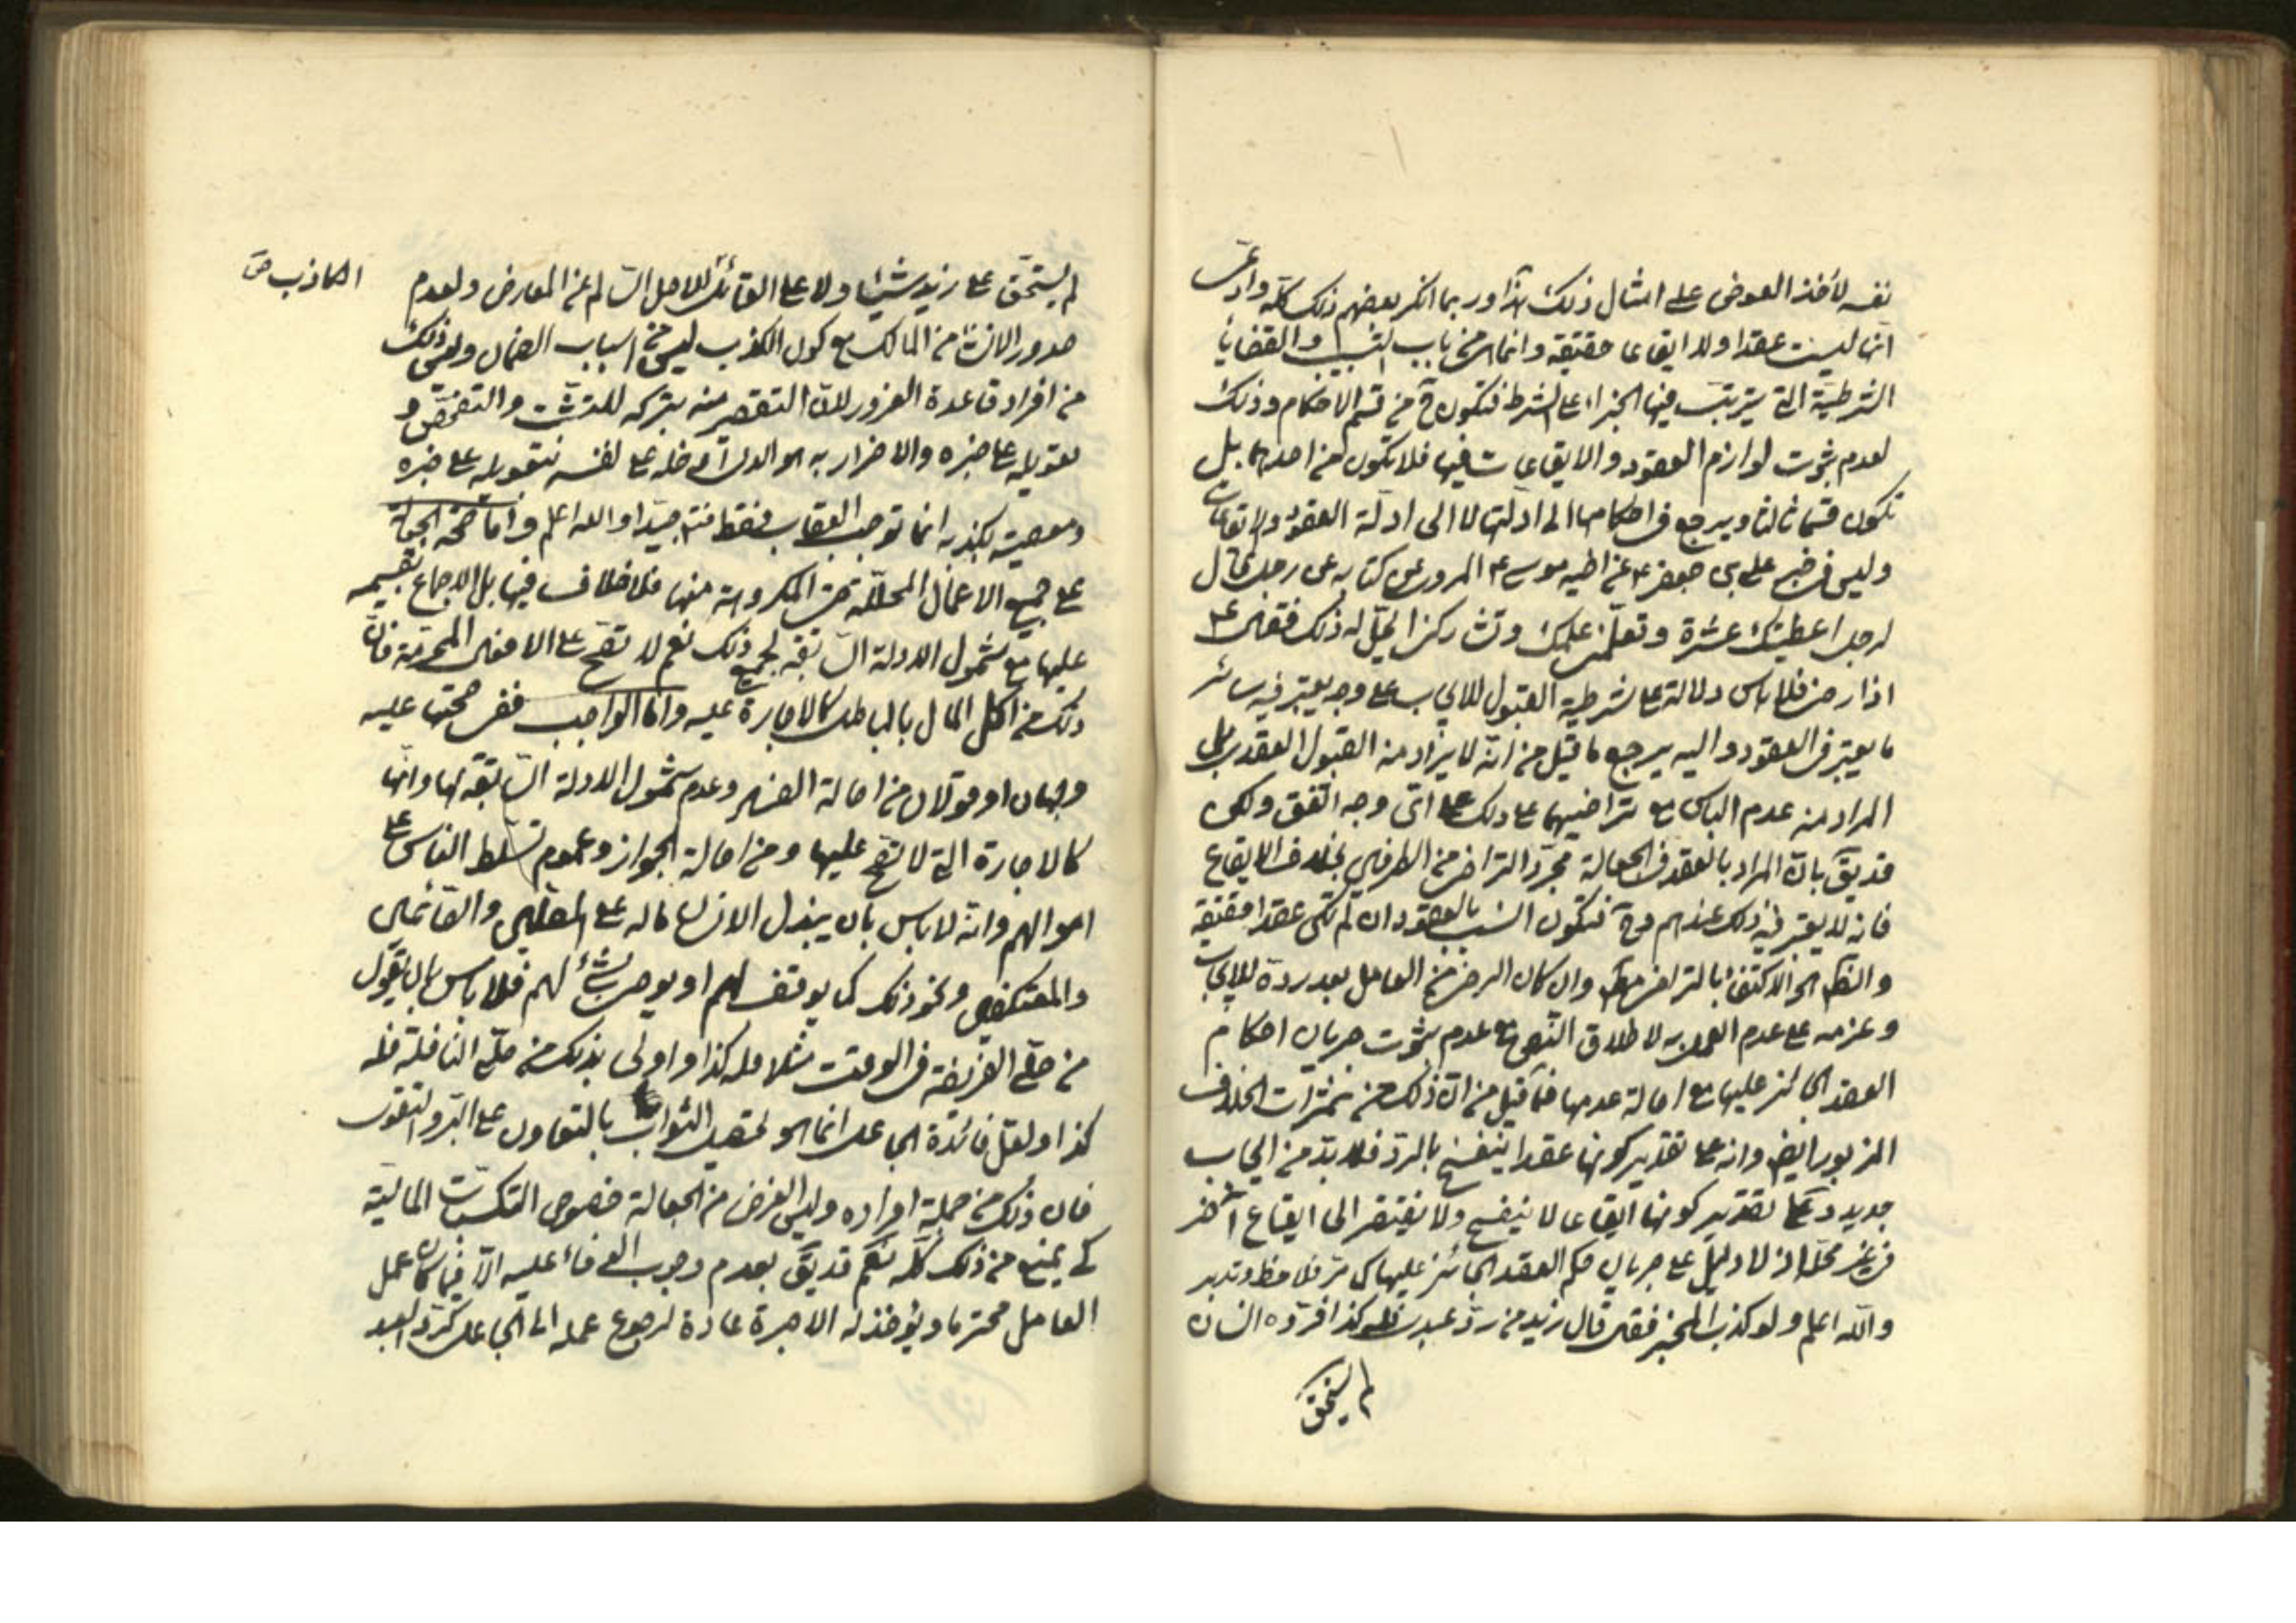 نفسه لأخذ العوض على امثال ذلك هذا وربما انكر بعضهم ذلك كله وادعى
انها ليست عقدا ولا ايقاعا حقيقة وانما هى من باب التسبيب والقضايا
الشرطية التى يترتب فيها الجزاء على الشرط فتكون ح من قسم الاحكام وذلك
لعدم ثبوت لوازم العقود والايقاعات فيها فلا تكون من احدهما بل
تكون قسما ثالثا ويرجع فى احكامها الى ادلتها لا الى ادلة العقود والايقاعات
وليس فى خبر على بن جعفر ع عن اخيه موسى ع المروى عن كتابه عن رجل قال
لرجل اعطيتك عشرة وتعلمنى علمك وتشاركنى ايحل له ذلك فقال ع
اذا رضى فلا باس دلالة على شرطية القبول للايجاب على وجه يعتبر فيه سائر
ما يعتبر فى العقود واليه يرجع ما قيل من انه لا يراد منه القبول العقدى بل
المراد منه عدم الباس مع تراضيهما على ذلك على اى وجه اتفق ولكن
قد يق بان المراد بالعقد فى الجعالة مجرد التراضى من الطرفين بخلاف الايقاع
فانه لا يعتبر فيه ذلك عندهم وح فتكون اشبه بالعقود وان لم تكن عقدا حقيقة
والظ هو الاكتفاء بالتراضى مط وان كان الرضى من العامل بعد رده للايجاب
وعزمه على عدم العمل به لاطلاق النص مع عدم ثبوت جريان احكام
العقد الجائز عليها مع اصالة عدمها فما قيل من ان ذلك من ثمرات الخلاف
المزبور ايض وانه على تقدير كونها عقدا ينفسخ بالرد فلا بد من ايجاب
جديد وعلى تقدير كونها ايقاعا لا ينفسخ ولا يفتقر الى ايقاع اخر
فى غير محله اذ لا دليل على جريان حكم العقد الجائز عليها كما مر فلاحظ وتدبر
والله اعلم ولو كذب المخبر فقال قال زيد من رد عبدى فله كذا فرده انسان
لم يستحق
لم يستحق على زيد شيئا ولا على القائل للاصل السالم عن المعارض ولعدم
الكاذب ص
صدور الانشاء من المالك مع كون الكذب ليس من اسباب الضمان وليس ذلك
من افراد قاعدة الغرور لان التقصير منه بتركه للتثبت والتفحص و
تعويله على خبره والاضرار به هو الذى ادخله على نفسه بتعويله على خبره
ومعصيته بكذبه انما توجب العقاب فقط فتنبه جيدا والله اعلم واما صحة الجعالة
على جميع الاعمال المحللة حتى المكروهة منها فلا خلاف فيها بل الاجماع بقسميه
عليها مع شمول الادلة السابقة لجميع ذلك نعم لا تصح على الافعال المحرمة فان
ذلك من اكل المال بالباطل كالاجارة عليه واما الواجب ففى صحتها عليه
وجهان او قولان من اصالة الفساد وعدم شمول الادلة السابقة لها وانها
كالاجارة التى لا تصح عليها ومن اصالة الجواز وعموم تسلط الناس على
اموالهم وانه لا باس بان يبذل الانسان ماله على المصلين والصائمين
والمعتكفين ونحو ذلك كما يوقف لهم او يوصى بشئ لهم فلا باس بان يقول
من صلى الفريضة فى الوقت مثلا فله كذا واولى بذلك من صلى النافلة فله
كذا ولعل فائدة الجاعل انما هو تحصيل الثواب بالتعاون على البر والتقوى
فان ذلك من جملة افراده وليس الغرض من الجعالة خصوص التكسبات المالية
كى يمنع من ذلك كله نعم قد يق بعدم وجوب الوفاء عليه الا فيما كان عمل
العامل محترما ويؤخذ له الاجرة عادة لرجوع عمله الى الجاعل كرد العبد